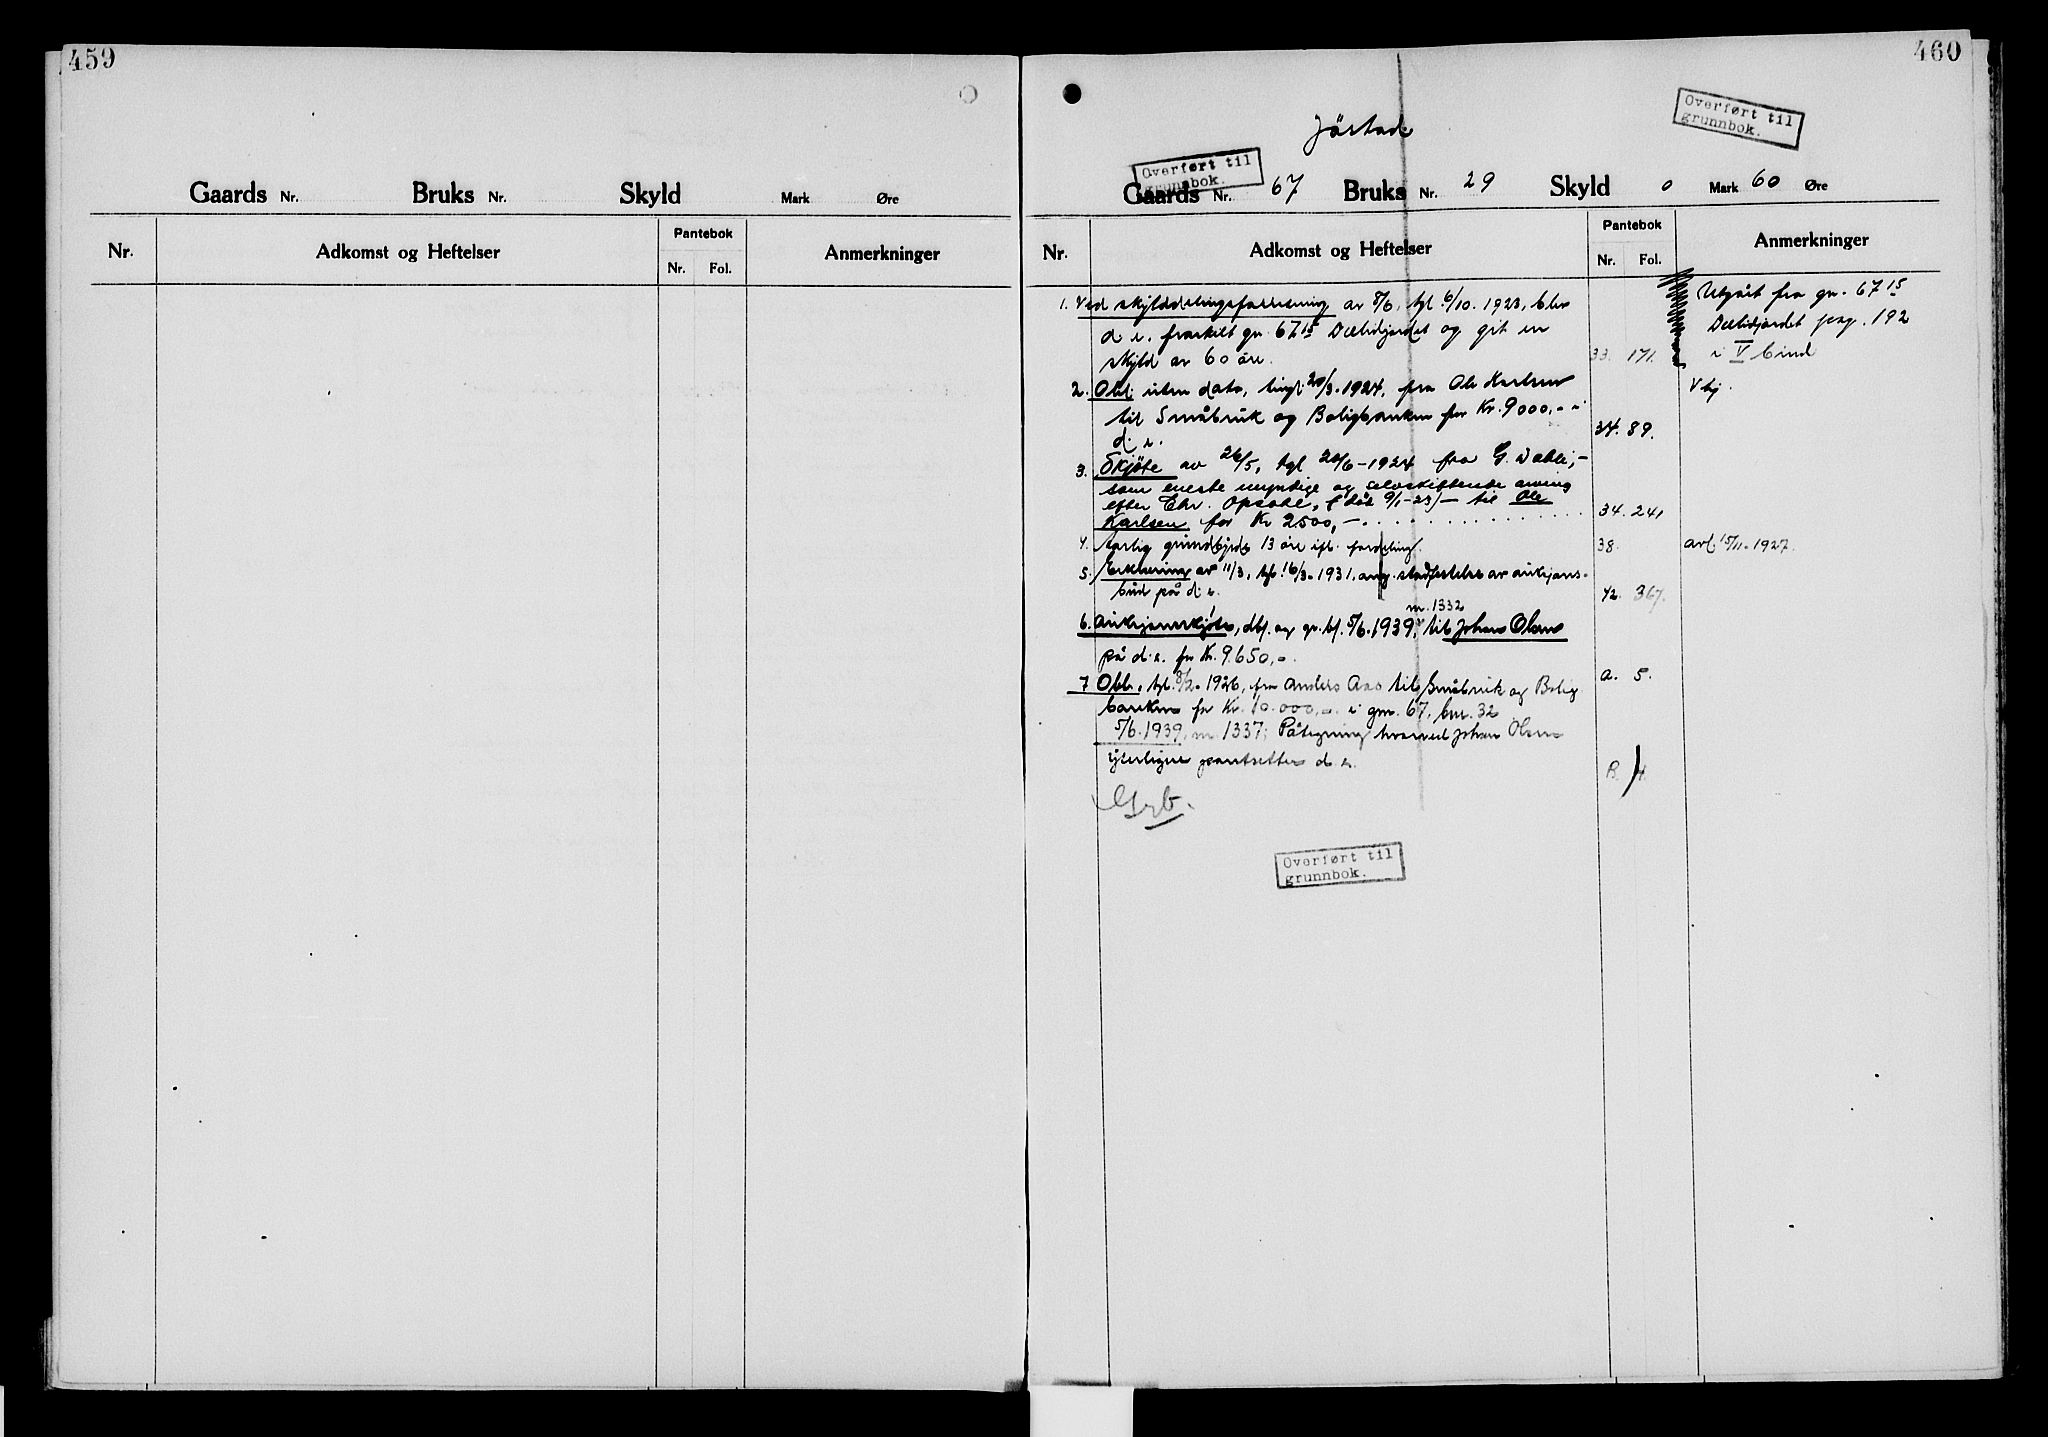 459
Gaards Nr. Bruks Nr. Skyld Mark Øre
Nr. Adkomst og Heftelser Pantebok Nr. Fol. Anmerkninger
460
Overført til
grunnbok.
Jörstad
Overført til
grunnbok.
Gaards Nr. 67 Bruks Nr. 29 Skyld 0 Mark 60 Øre
Nr. Adkomst og Heftelser Pantebok Nr. Fol. Anmerkninger
1. Ved skylddelingsforretning av 8/6, tgl. 6/10. 1923, blev
d. e. fraskilt gr. 67 15 Dælidjordet og git en
skyld av 60 öre. 33. 171.
Utgåt fra gr. 67 15
Dælidjordet pag. 192
i V bind
2. Obl. uten dato, tingl. 20/3-1924, fra Ole Karlsen V bj.
til Småbruk og Boligbanken for Kr. 9000,- i
d. e. 34. 89.
3. Skjöte av 26/5, tgl 20/6-1924 fra G. Dæhli,-
som eneste myndige og selvskiftende arving
efter Chr. Opsahl, (död 9/1-23)- til Ole
Karlsen for Kr 2500,- 34. 241
4. Aarlig grundbyrde 13 öre ifl. fordeling. 38. avl. 15/11-1927.
5. Erklæring av 11/3, tgl. 16/3-1931, ang. stadfestelse av auksjons-
bud på d. e. 42. 367.
m. 1332
6. Auksjonsskjöte, dbf. og gr. bf. 5/6.1939, til Johan Olsen
på d. e. for Kr. 9.650,-. a. 5.
7 Obl., tgl. 8/2-1926, fra Anders Aas til Småbruk og Bolig
banken for Kr. 10.000,- i gnr. 67, bnr. 32
5/6.1939, m 1337; Påtegning hvorved Johan Olsen
ytterligere pantsetter d. e. B. 4.
Overført til
grunnbok.